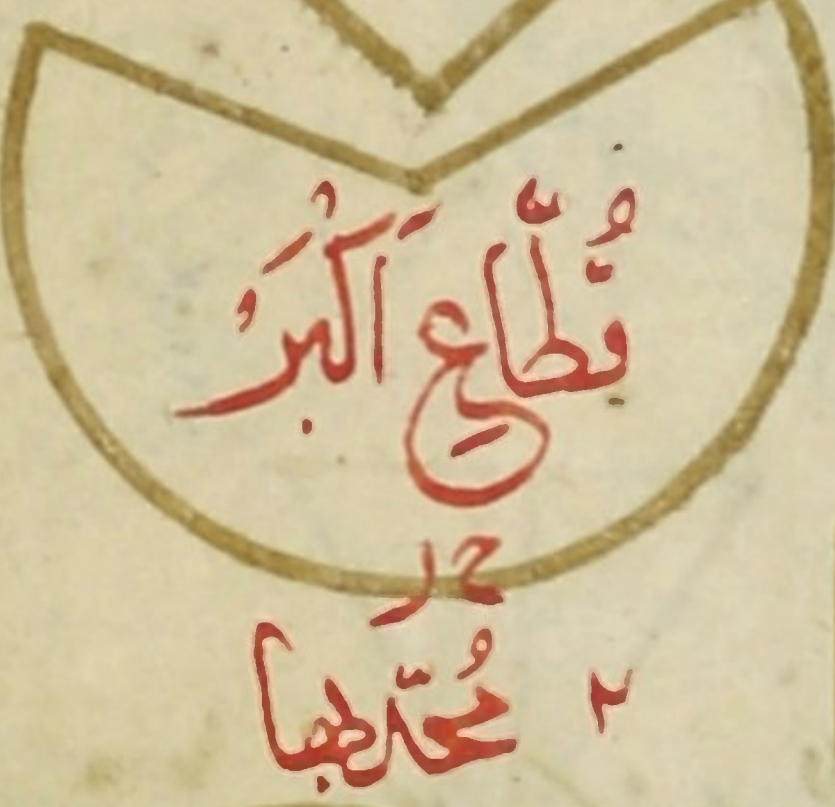 قُطَّاعِ اَكْبَرْ
حد
٢ مُحدّبها